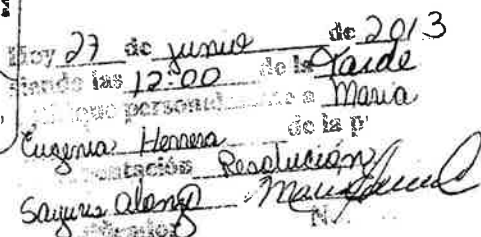 Hoy 27 de junio de 2013
siendo las 12:00 de la Tarde
que personalmente a Maria
Eugenia Herrera de la p
Resolución
Sayuris Alonzo